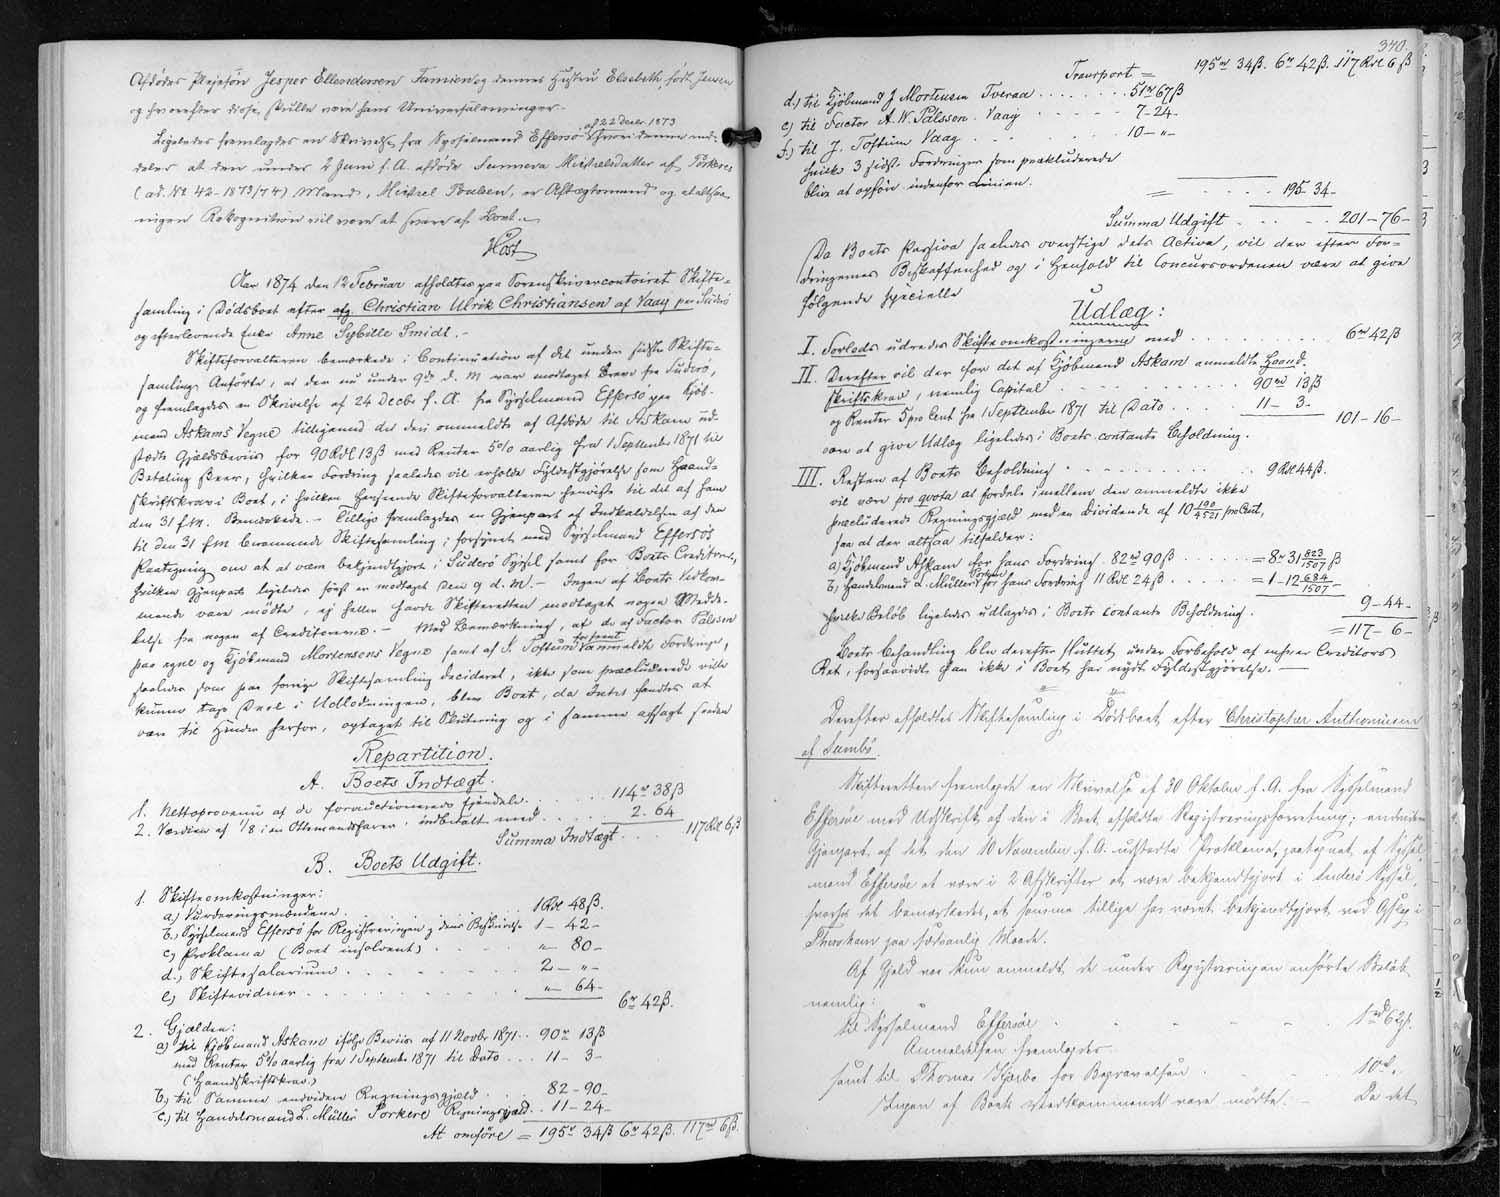 Afdödes Plejesön Jesper Ellendersen Famien og dennes Hustru Elsebeth, født Jensen
og hvorefter disse skulle være hans Universalarvinger.
Ligeledes fremlagdes en Skrivelse fra Sysselmand Effersö af 22 Decbr. 1873 hvori denne med-
deler at den under 2 Juni f. A. afdöde Sunneva Michelsdatter af Porkere
(ad. No 42-1873/74) Mand, Michel Poulsen, er Aftægtsmand og at altsaa
ningen Rekognition vil være at svare af Boet.
Höst
Aar 1874 den 12 Februar afholdtes paa Sorenskrivercontoiret Skifte-
samling i Dødsboet efter afg. Christian Ulrik Christiansen af Vaag paa Suderö
og efterlevende Enke Anne Sybille Smidt.-
Skifteforvalteren bemærkede i Continuation af det under sidste Skifte-
samling Anførte, at der nu under 9de d. M. var modtaget Breve fra Suderö,
og fremlagdes en Skrivelse af 24 Decbr f. A. fra Sysselmand Effersö paa Kjöb-
mand Askams Vegne tilligemed det deri ommeldte af Afdöde til Askam ud-
stædte Gjældsbeviis for 90 Rdl 13 ß med Renter 5% aarlig fra 1 September 1871 til
Betaling skeer, hvilken Fordring saaledes vil erholde Fyldestgjörelse som Haand-
skriftskrav i Boet, i hvilken Henseende Skifteforvalteren henviste til det af ham
den 31 f. M. Bemærkede.- Tillige fremlagdes en Gjenpart af Indkaldelsen af den
til den 31 f M berammede Skiftesamling, forsynet med Sysselmand Effersös
Paategning om at at være bekjendtgjort i Suderö Syssel samt for Boets Creditorer,
hvilken Gjenpart ligeledes först er modtaget den 9 d. M.- Ingen af Boets Vedkom-
mende vare mödte, ej heller havde Skifteretten modtaget nogen Medde-
lelse fra nogen af Creditorerne.- Med Bemærkning, at de af Factor Pálsson
paa egne og Kjöbmand Mortensens Vegne samt af J. Toftum for seent anmeldte Fordringer,
saaledes som paa forrige Skiftesamling decideret, ikke som præcluderede ville
kunne tage Deel i Udlodningen, blev Boet, da Intet fandtes at
være til Hinder herfor, optaget til Slutning og i samme afsagt saadan
Repartition.
A. Boets Indtægt.
1. Nettoprovenu af de forauctionerede Ejendele . . . . 114 rd 38 ß
2. Værdien af 1/8 i en Ottemandsfarer, indbetalt med . . . . 2. 64
Summa Indtægt . . . 117 Rdl 6 ß
B. Boets Udgift.
1. Skifteomkostninger:
a) Vurderingsmændene . . . . 1 Rdl 48 ß.
b.) Sysselmand Effersö for Registreringen og dens Beskrivelse 1 - 42 -
c) Proklama (Boet insolvent) . . . . " - 80 -
d.) Skiftesalarium . . . . 2 - " -
e) Skiftevidner . . . . " - 64 -
6 rd 42 ß.
2. Gjælden:
a) til Kjöbmand Askam ifölge Beviis af 11 Novbr 1871 . . 90 rd 13 ß
med Renter 5% aarlig fra 1 September 1871 til Dato . . . 11 - 3 -
(Haandskriftskrav.)
b) til Samme endvidere Regningsgjæld . . . . 82 - 90 -
c.) til Handelsmand L. Müller Porkere Regningsgjæld . . 11 - 24 -
At omföre = 195 rd 34 ß 6 rd 42 ß. 117 rd 6 ß.
340.
Transport = 195 rd 34 ß. 6 rd 42 ß. 117 Rdl 6 ß
d.) til Kjöbmand J Mortensen Tveraa . . . . 51 rd 67 ß
e) til Factor A. W. Pálsson. Vaag . . . . 7 - 24 -
f.) til J. Toftum Vaag . . . . 10 - " -
hvilke 3 sidste Fordringer som præcluderede
blive at opföre indenfor Linien.
= . . . . 195 - 34 -
Summa Udgift . . . . 201 - 76 -
Da Boets Passiva saaledes overstige dets Activa, vil der efter For-
dringernes Beskaffenhed og i Henhold til Concursordenen være at give
fölgende specielle
Udlæg:
I. Forlods udredes Skifteomkostningerne med . . . . 6 rd 42 ß
II. Derefter vil der for det af Kjöbmand Askam anmeldte Haand-
skriftskrav, nemlig Capital . . . . 90 rd 13 ß
og Renter 5 pro Cent fra 1 September 1871 til Dato . . . . 11 - 3 -
101 - 16 -
være at give Udlæg ligeledes i Boets contante Beholdning.
III. Resten af Boets Beholdning . . . . 9 Rdl 44 ß.
vil være pro qvota at fordele imellem den anmeldte ikke
præcluderede Regningsgjæld med en Dividende af 10 190/4521 pro Cent,
saa at der altsaa tilfalder:
a) Kjöbmand Askam for hans Fordring 82 rd 90 ß . . . . = 8 rd 31 823/1507 ß
b) Handelsmand L. Müller Porkere for hans Fordring 11 Rdl 24 ß . . . . = 1 - 12 684/1507 -
9 - 44 -
hvilke Belöb ligeledes udlægges i Boets contante Beholdning.
= 117 - 6 -
Boets Behandling blev derefter sluttet under Forbehold af enhver Creditors
Ret, forsaavidt han ikke i Boet har nydt Fyldestgjörelse.-
Derefter afholdtes Skiftesamling i Dödsboet efter Christopher Anthoniusen
af Sumbö.
Skifteretten fremlagde en Skrivelse af 30 Oktober f. A. fra Sysselmand
Effersöe med Udskrift af den i Boet afholdte Registreringsforretning; endvidere
Gjenpart af det den 10 November f. A. udstedte Proklama, paategnet af Syssel-
mand Effersöe at være i 2 Afskrifter at være bekjendtgjort i Suderö Syssel,
hvorhos det bemærkedes, at samme tillige har været bekjendtgjort ved Opslag i
Thorshavn paa sædvanlig Maade.
Af Gjeld var kun anmeldt de under Registreringen anförte Belöb
nemlig:
til Sysselmand Effersöe . . . . 1 rd 62 ß.
Anmeldelsen fremlagdes.
samt til Thomas Kjærbo for Begravelsen . . . . 10 rd ".
Ingen af Boets Vedkommende vare mödte. - Da det